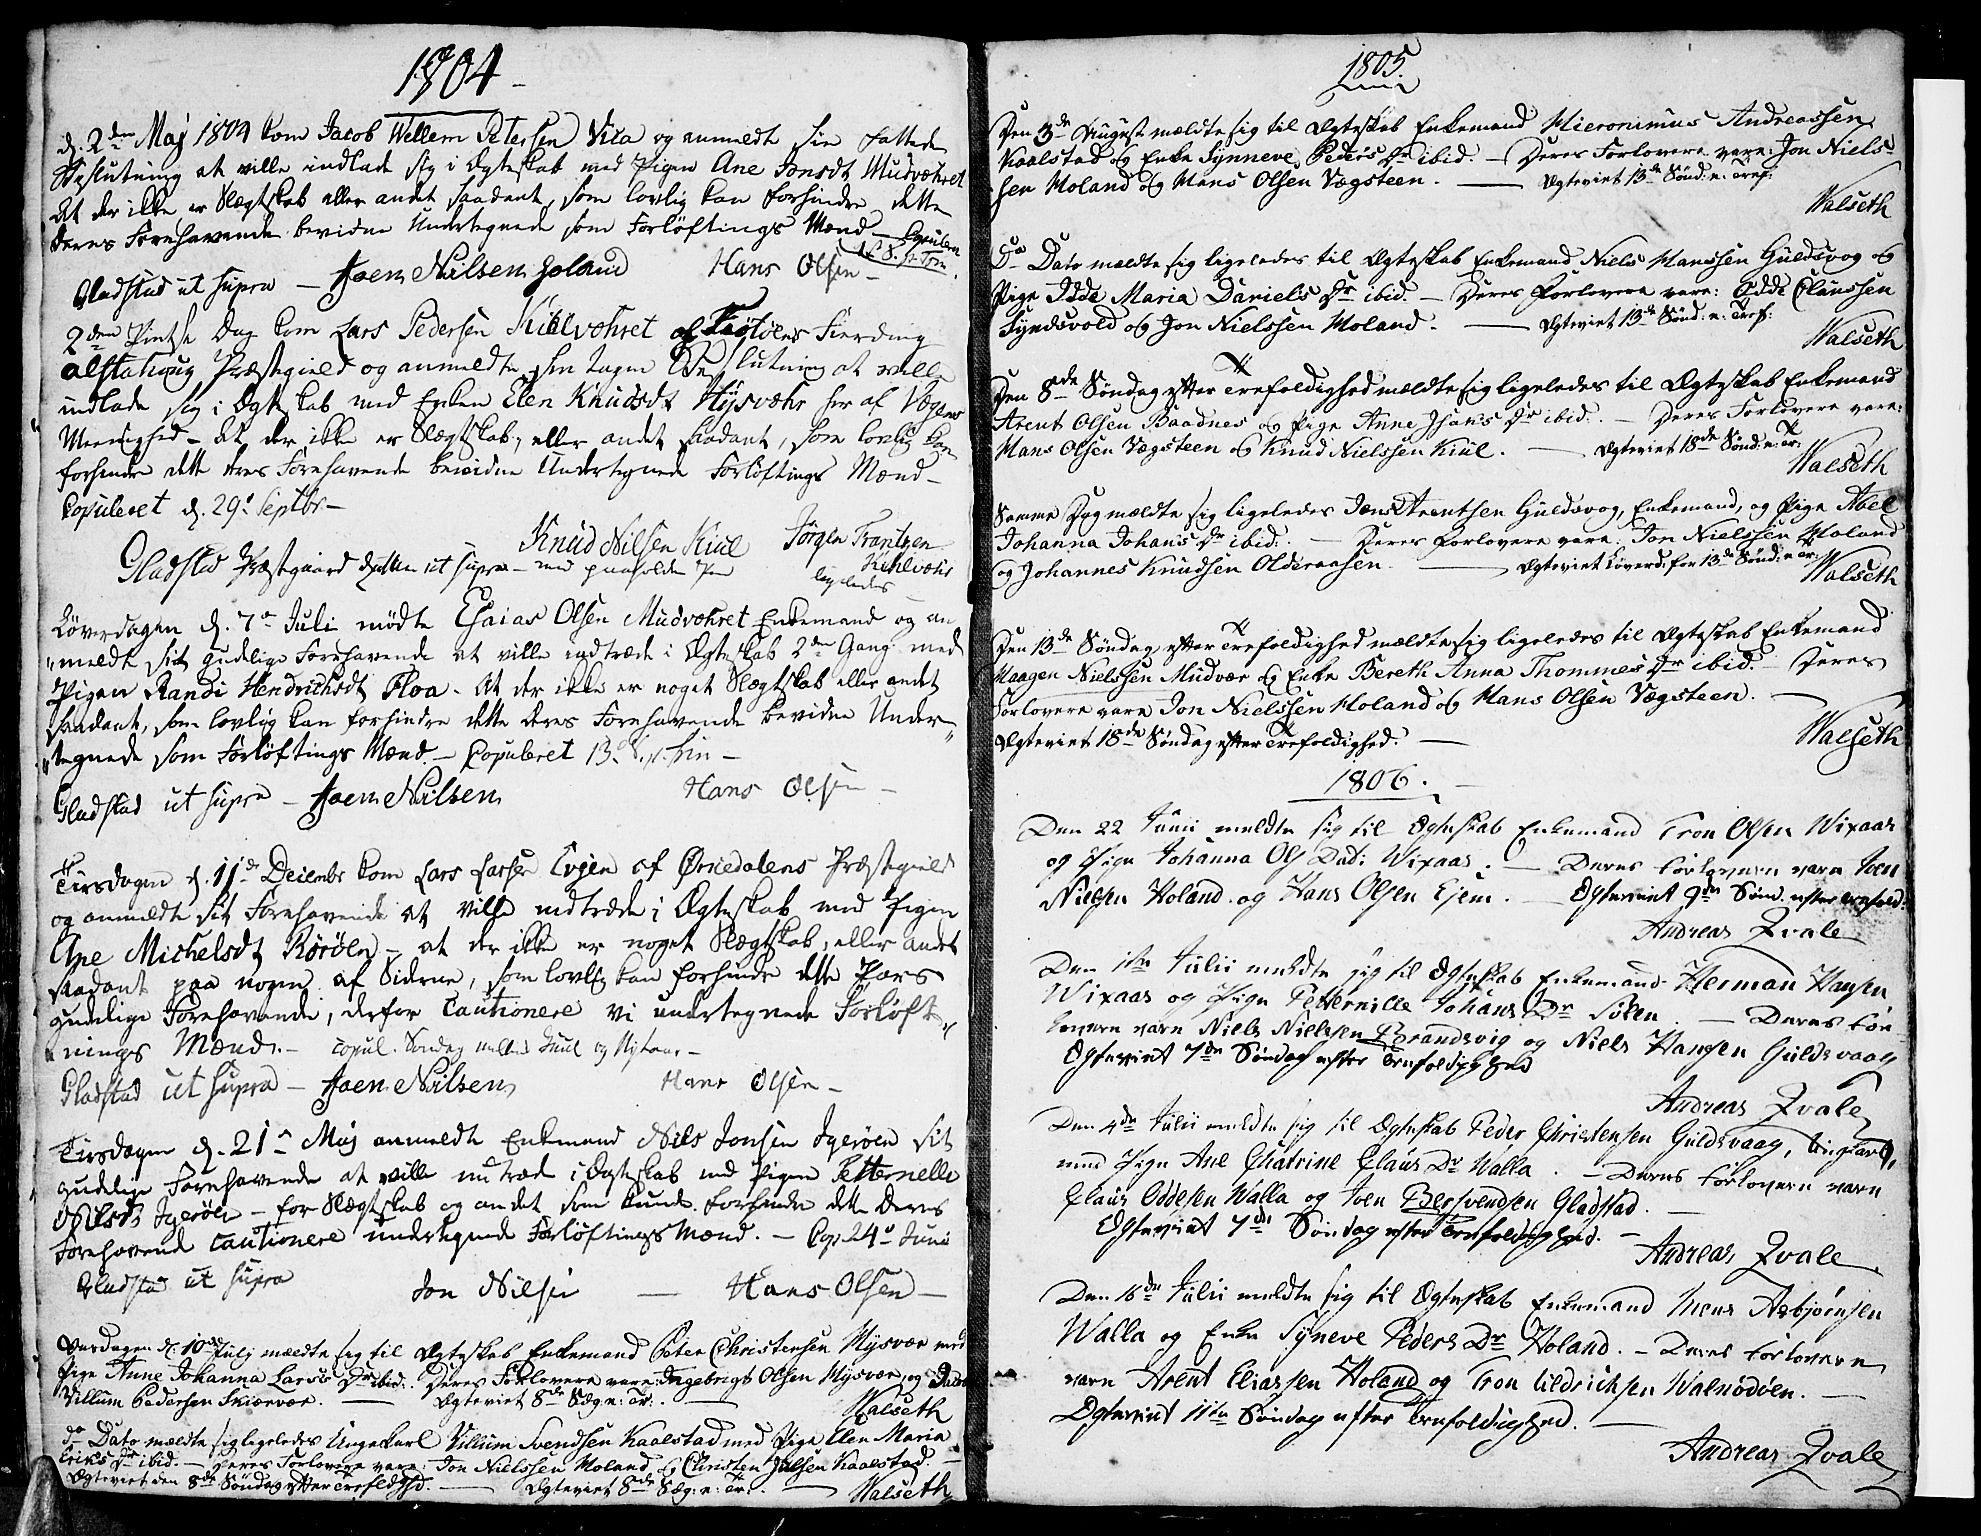 1804
d. 2den Maj 1804 kom Jacob Wellem Petersen Vixa og anmeldte sin fattede
Beslutning at ville indlade sig i Ægteskab med Pigen Ane Jonsdt Mudværet
At der ikke er Slægtskab eller andet saadant, som lovlig kan forhindre dette
deres Forehavende bevidne Undertegnede som Forløftings Mænd – Copuleret
d. 8. p. Trin.
Gladstad ut supra – Joen Nilsen Holand Hans Olsen –
2den Pintse Dag kom Lars Pedersen Kiillværet af Tiøttøens Fierding
Alstahoug Præstegield og anmeldte sin tagen Beslutning at ville
indlade sig i Ægteskab med Enken Elen Knudsdt Hysvær her af Vægens
Meenighed – At der ikke er Slægtskab, eller andet saadant, som lovlig kan
forhindre dette deres Forehavende bevidne Undertegnede Forløftings Mænd –
Copuleret d. 29. Septbr –
Knud Nilsen Kiul Jörgen Frantzen
Gladstad Præstegaard Datum ut supra – med paaholden Pen Kihlvær
ligeledes
Löverdagen d. 7de Juli mødte Esaias Olsen Mudværet Enkemand og an
meldte sit gudelige Forehavende at ville indtræde i Ægteskab 2den Gang med
Pigen Randi Hendrichsdt Floa. At der ikke er noget Slægtskab eller andet
saadant, som lovlig kan forhindre dette deres Forehavende bevidne Under
tegnede som Forløftings Mænd. – Copuleret 13. S. p. Trin –
Gladstad ut supra – Joen Nilsen Hans Olsen –
Tirsdagen d. 11de Decembr kom Lars Larsen Tvjen af Ørkedalens Præstegield
og anmeldte sit Forehavende at ville indtræde i Ægteskab med Pigen
Ane Michelsdt Rörøen – at der ikke er noget Slægtskab, eller andet
saadant paa nogen af Siderne, som lovlig kan forhindre dette Pars
gudelige Forehavende, derfor Cautionere vi undertegnede Forløft
nings Mænd. – copul. Søndag mellem Juul og Nytaar –
Gladstad ut supra – Joen Nilsen Hans Olsen –
Tirsdagen d. 21de Maj anmeldte Enkemand Nils Jonsen Igerøen sit
gudelige Forehavende at ville indtræde i Ægteskab med Pigen Petternelle
Nilsdt Igerøen – for Slægtskab og andet som kunde forhindre dette Deres
Forehavende Cautionere undertegnede Forløftings Mænd. – Cop. 24de Juni
Gladstad ut supra Jon Nilsen – Hans Olsen –
Onsdagen d. 10de July mældte sig til Ægteskab Enkemand Peter Christensen Hysvær med
Pige Anne Johanna Lars's Dr ibid. Deres Forlovere vare: Ingebrigt Olsen Hysvær, og Jacob
Villum Pedersen Skiærvær. – Ægteviet 8de Søg: e: Tr: – Walseth
do Dato mældte sig ligeledes Ungekarl Villum Svendsen Kaalstad med Pige Elen Maria
Eriks Dr ibid. – Deres Forlovere vare: Jon Nielssen Moland og Christen Julsen Kaalstad. –
Ægteviet den 8de Søndag efter Trefoldghd. – Ægteviet 8de Søg: e: Tr: – Walseth
1805.
Den 3de August mældte sig til Ægteskab Enkemand Hieronimus Andreassen
Kaalstad og Enke Synneve Peders Dr ibid. – Deres Forlovere vare: Jon Niels
sen Holand og Hans Olsen Vægsteen. – Ægteviet 13de Sønd: e: Tref:
Walseth
Do Dato mældte sig ligeledes til Ægteskab Enkemand Niels Hanssen Guldsvog og
Pige Idde Maria Daniels Dr ibid. – Deres Forlovere vare: Odde Claussen
Syndsvold og Jon Nielssen Holand. – Ægteviet 13de Sønd: e: Tref:
Walseth
Den 8de Søndag efter Trefoldighed mældte sig ligeledes til Ægteskab Enkemand
Arent Olsen Baadnes og Pige Anne Johans Dr ibid. – Deres Forlovere vare:
Hans Olsen Vægsteen og Knud Nielssen Kiul. – Ægteviet 18de Sønd: e: Tr:
Walseth
Samme Dag mældte sig ligeledes Jens Arentsen Guldsvog, Enkemand, og Pige Abel
Johanna Johans Dr ibid. – Deres Forlovere vare: Jon Nielssen Holand
og Johannes Knudsen Olderaasen. – Ægteviet Løverd: for 13de Sønd: e: Tr:
Walseth
Den 13de Søndag efter Trefoldighed mældte sig ligeledes til Ægteskab Enkemand
Haagen Nielssen Mudvær og Enke Bereth Anna Thommes Dr ibid. – Deres
Forlovere vare Jon Nielssen Holand og Hans Olsen Vægsteen. –
Ægteviet 18de Søndag efter Trefoldighed. –
Walseth
1806.
Den 22 Junii meldte sig til Ægteskab Enkemand Tron Olsen Wixaas
og Pige Johanna Ols Datr Wixaas. – Deres Forlovere vare Joen
Nielsen Holand og Hans Olsen Ejem. – Ægteviet 9de Sønd. efter Trefold:
Andreas Qvale
Den 1ste Julii meldte sig til Ægteskab Enkemand Herman Hansen
Wixaas og Pige Petternille Johans Dr Sølen. – Deres For
lovere vare Niels Nielsen Brandsvig og Niels Hansen Guldsvaag
Ægteviet 7de Søndag efter Trefoldighed
Andreas Qvale
Den 4de Julii meldte sig til Ægteskab Peder Christensen Guldsvaag, Ungkarl,
med Pige Ane Chatrine Claus Dr Walla. – Deres Forlovere vare
Claus Oddesen Walla og Joen Bersvendsen Gladstad. –
Ægteviet 7de Søndag efter Trefoldighed. –
Andreas Qvale
Den 16de Julii meldte sig til Ægteskab Enkemand Mens Asbjørnsen
Walla og Enke Syneve Peders Dr Holand. – Deres Forlovere
vare Arent Eliassen Holand og Tron Uldrichsen Walnødøen. –
Ægteviet 11te Søndag efter Trefoldighed. –
Andreas Qvale